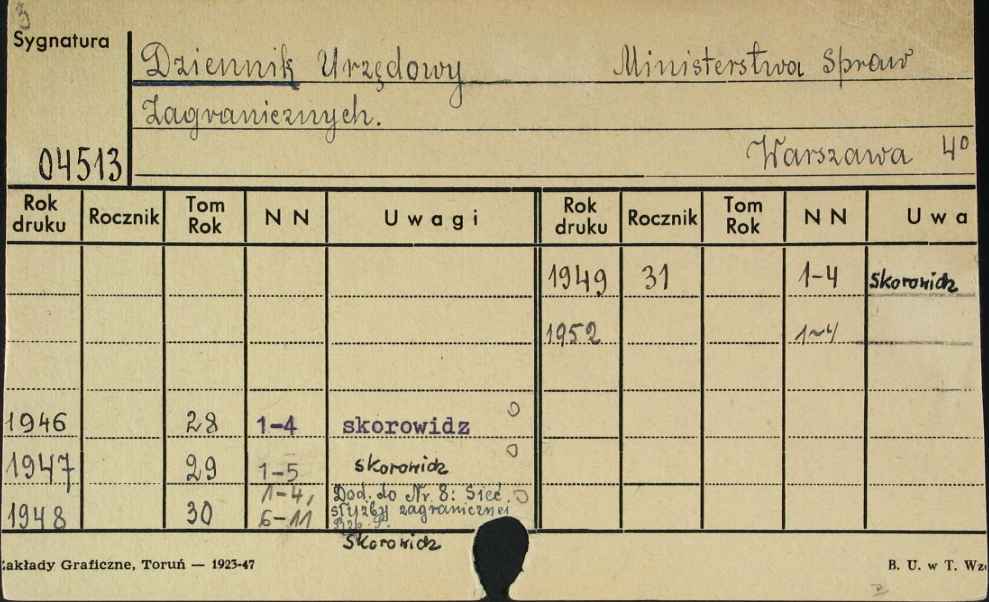 3
Sygnatura
Dziennik Urzędowy Ministerstwa Spraw
Zagranicznych.
04513
Warszawa 4º
Rok druku Rocznik Tom Rok N N Uwagi Rok druku Rocznik Tom Rok N N Uwa
1949 31 1-4 skorowidz
1952 1-4
1946 28 1-4 skorowidz
1947 29 1-5 skorowidz
1948 30 1-4, 6-11 Dod. do Nr. 8: Sieć
służby zagranicznej
skorowidz
Zakłady Graficzne, Toruń — 1923-47
B. U. w T. Wzó